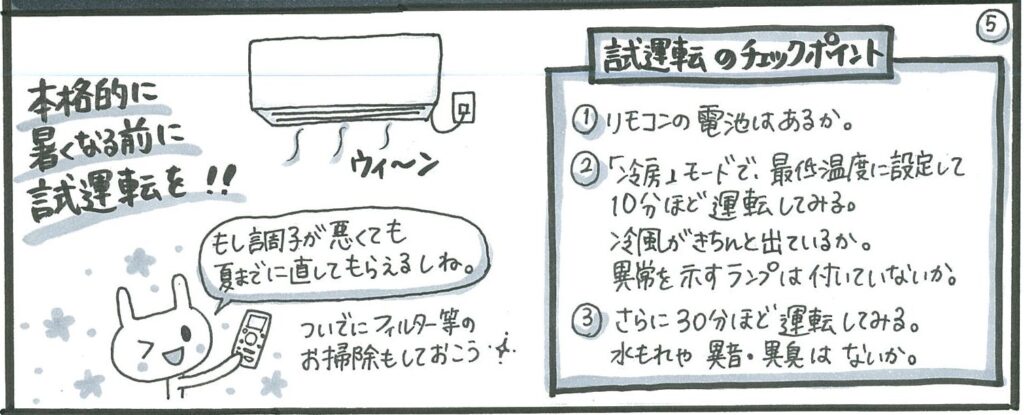 ⑤
本格的に
暑くなる前に
試運転を!!
ウィ〜ン
もし調子が悪くても
夏までに直してもらえるしね。
ついでにフィルター等の
お掃除もしておこう
試運転のチェックポイント
①リモコンの電池はあるか。
②「冷房」モードで、最低温度に設定して
10分ほど運転してみる。
冷風がきちんと出ているか。
異常を示すランプは付いていないか。
③さらに30分ほど運転してみる。
水もれや異音・異臭はないか。